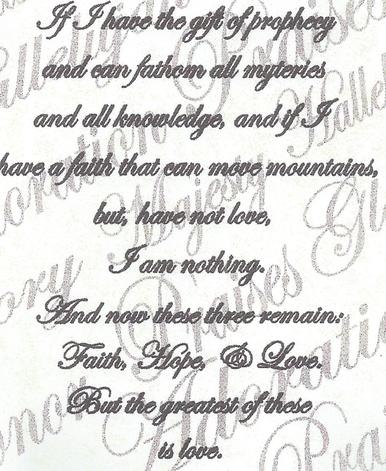 If I have the gift of prophecy
and can fathom all myteries
and all knowledge, and if I
have a faith that can move mountains,
but, have not love,
I am nothing.
And now these three remain:
Faith, Hope, & Love.
But the greatest of these
is love.
Praises
Adoration
Majesty
Glory
Praises
Adoration